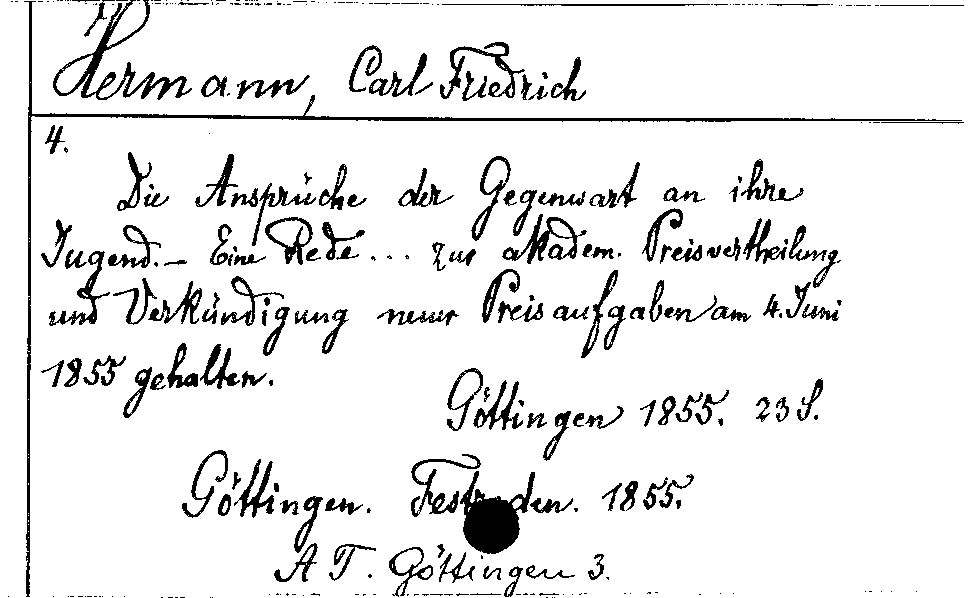 Hermann, Carl Friedrich
4.
Die Ansprüche der Gegenwart an ihre
Jugend. – Eine Rede ... zur akadem. Preisvertheilung
und Verkündigung neuer Preisaufgaben am 4. Juni
1855 gehalten.
Göttingen 1855. 23 S.
Göttingen. Festreden. 1855.
A T. Göttingen 3.